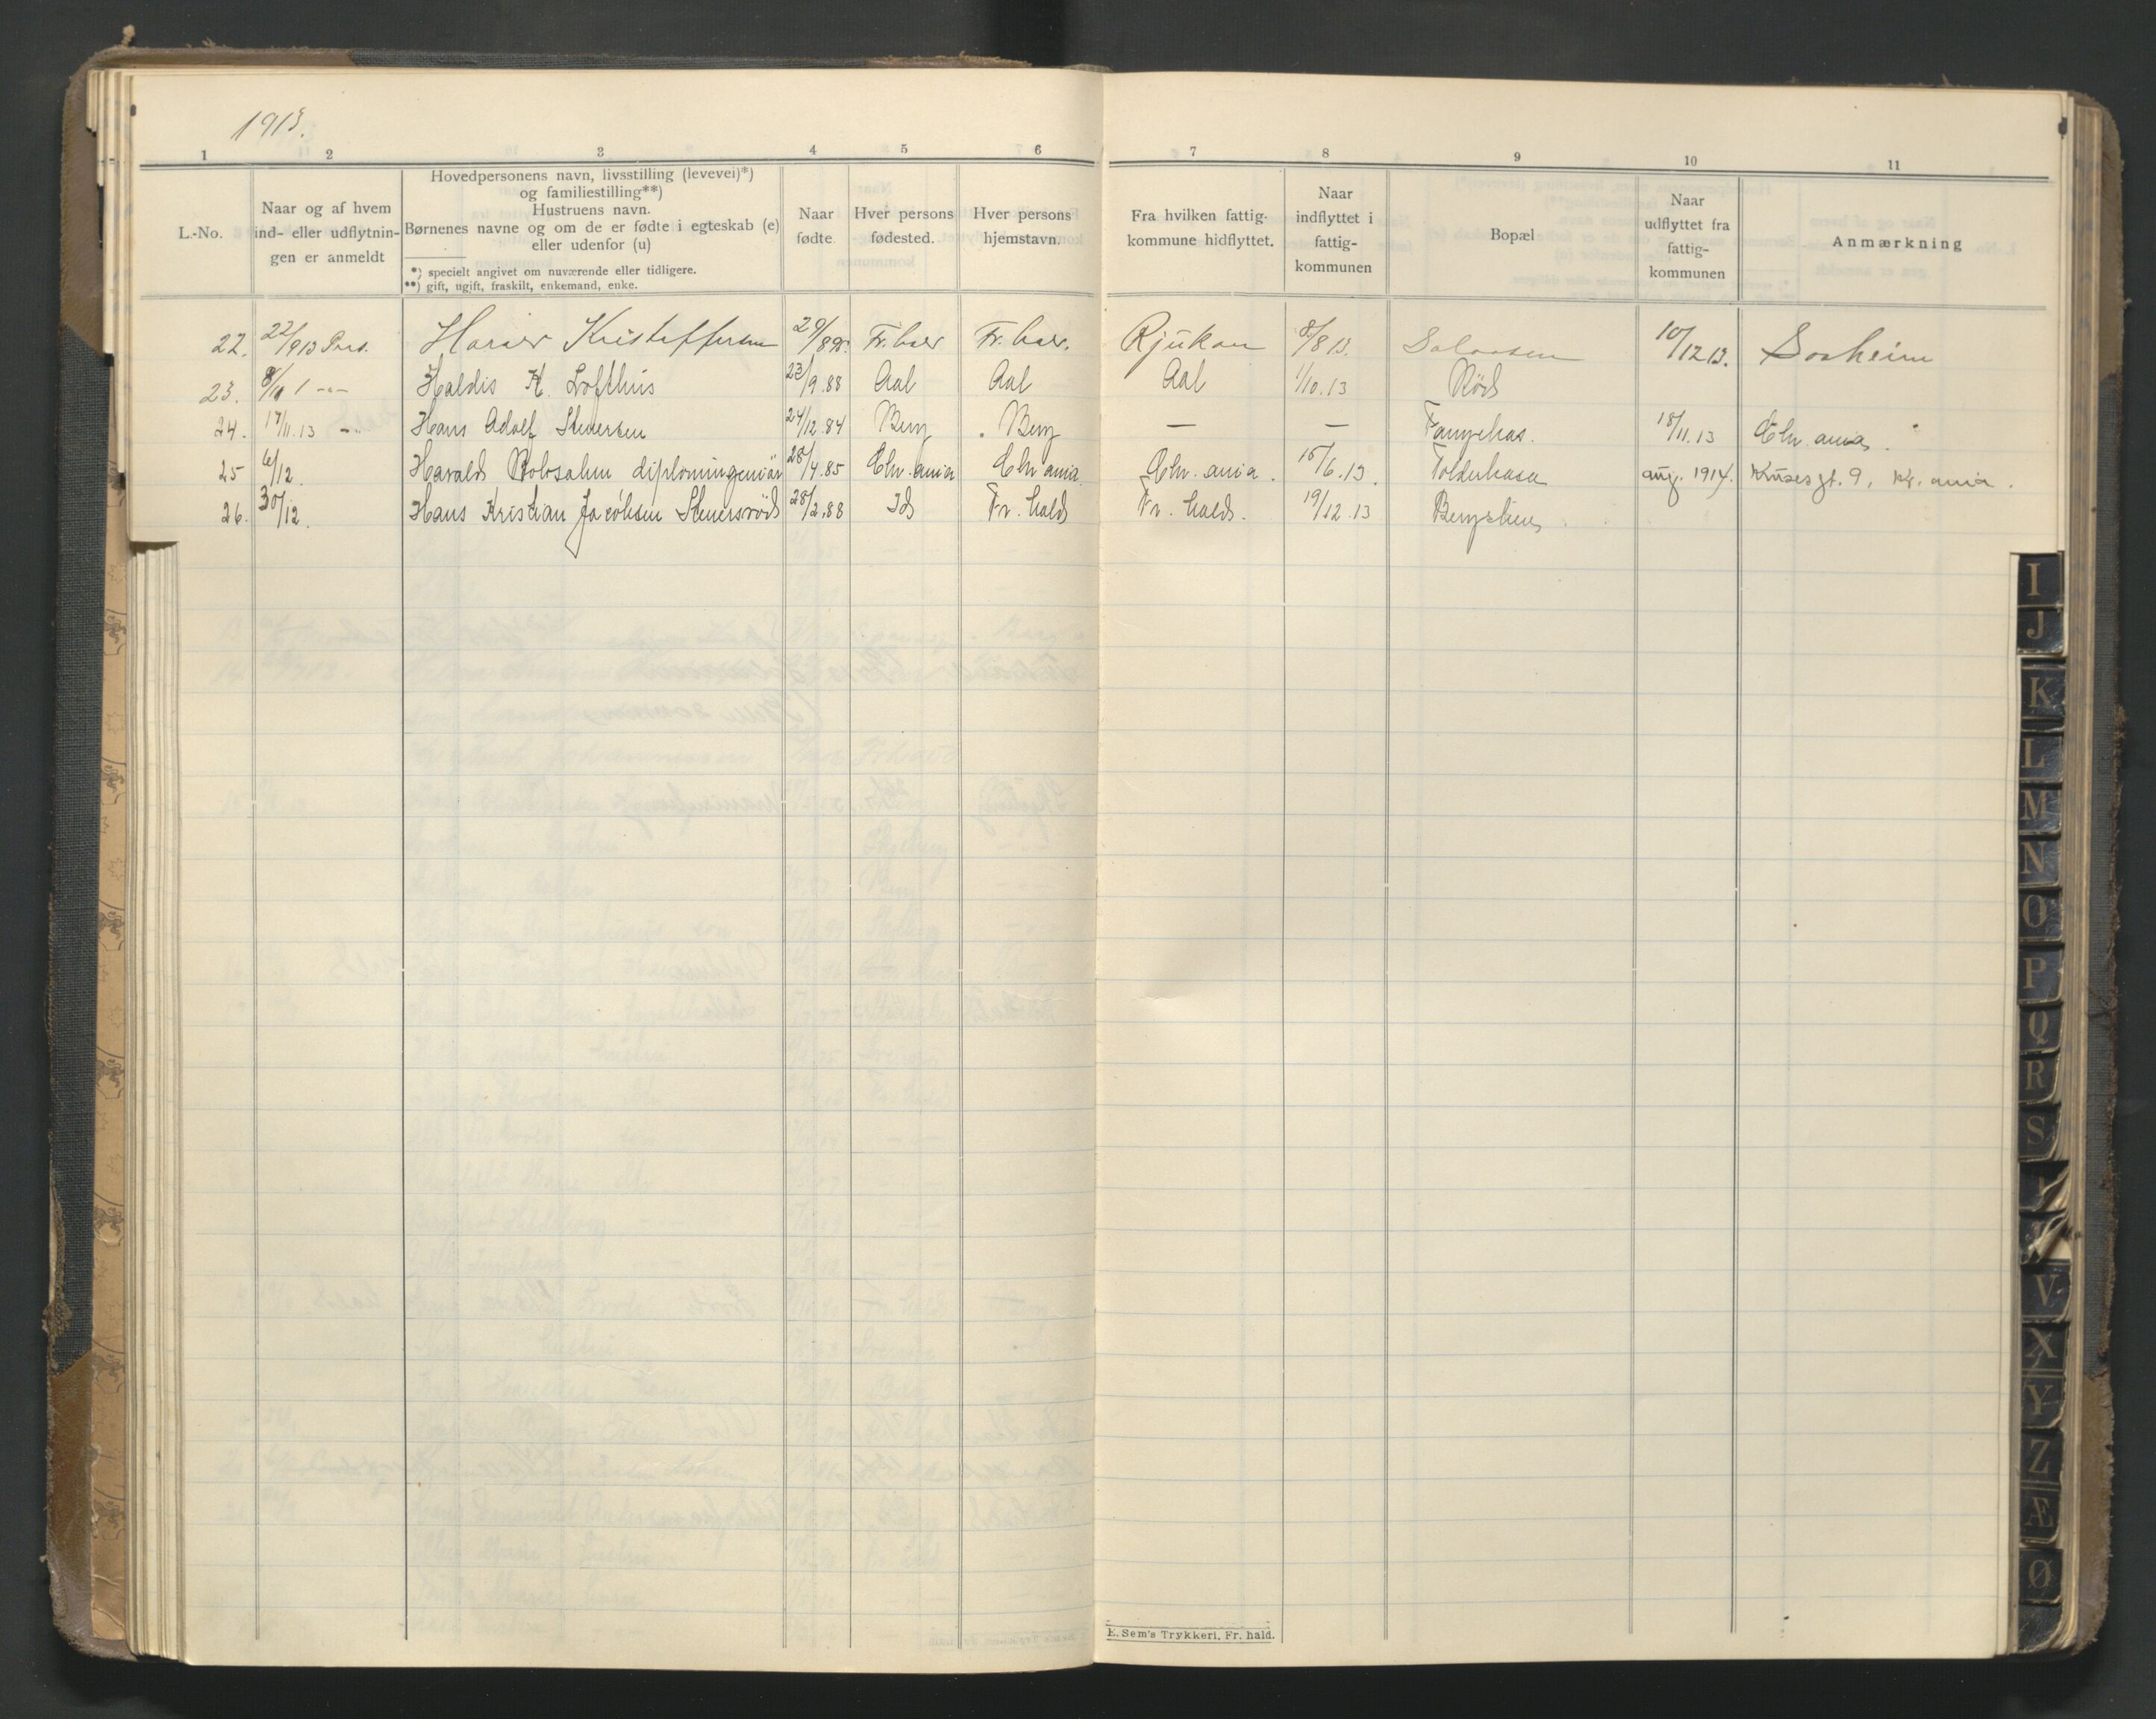 1913.
1 2 3 4 5 6 7 8 9 10 11
L.-No.
Naar og af hvem
ind- eller udflytnin-
gen er anmeldt
Hovedpersonens navn, livsstilling (levevei)*)
og familiestilling**)
Hustruens navn.
Børnenes navne og om de er fødte i egteskab (e)
eller udenfor (u)
*) specielt angivet om nuværende eller tidligere.
**) gift, ugift, fraskilt, enkemand, enke.
Naar
fødte
Hver persons
fødested.
Hver persons
hjemstavn.
Fra hvilken fattig-
kommune hidflyttet.
Naar
indflyttet i
fattig-
kommunen
Bopæl
Naar
udflyttet fra
fattig-
kommunen
Anmærkning
22. 22/9 13 Kristoffersen Rjukan 8/8 13. 10/12 13. Saaheim
23. Haldis K. Lofthus 23/9.88 Aal Aal Aal 1/10.13 Röd
24. 17/11.13 Hans Adolf 24/12.84 Berg Berg — — 18/11.13 Chr.ania
25 6/12. Harald diplomingeniör 28/4.85 Chr.ania Chr.ania Chr.ania. 15/6.13. aug. 1914. Kruses gt. 9, Kr.ania.
26. 30/12. Hans Kristian Jacobsen Stenersröd 28/2.88 Id Fr. hald Fr. hald. 19/12.13
E. Sem's Trykkeri, Fr. hald.
I
J
K
L
M
N
O
P
Q
R
S
V
X
Y
Z
Æ
Ø